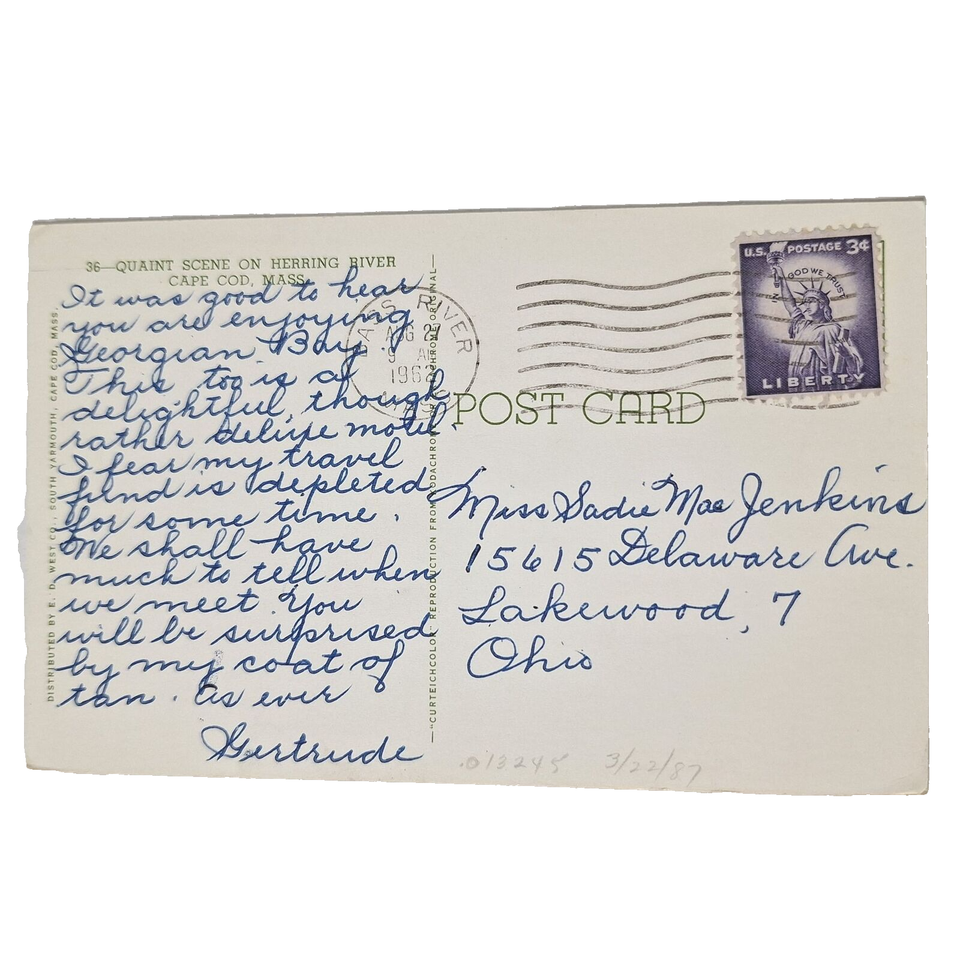 36—QUAINT SCENE ON HERRING RIVER
CAPE COD, MASS.
It was good to hear
you are enjoying
Georgian Bay.
This too is a
delightful, though
rather deluxe motel.
I fear my travel
fund is depleted
for some time.
We shall have
much to tell when
we meet. You
will be surprised
by my coat of
tan. As ever
Gertrude
DISTRIBUTED BY E. D. WEST CO., SOUTH YARMOUTH, CAPE COD, MASS.
"CURTEICHCOLOR" REPRODUCTION FROM KODACHROME ORIGINAL
BASS RIVER
AUG 2
9 AM
196
MASS
POST CARD
U.S. POSTAGE 3¢
IN GOD WE TRUST
LIBERTY
Miss Sadie Mae Jenkins
15615 Delaware Ave.
Lakewood, 7
Ohio
.013245 3/22/87